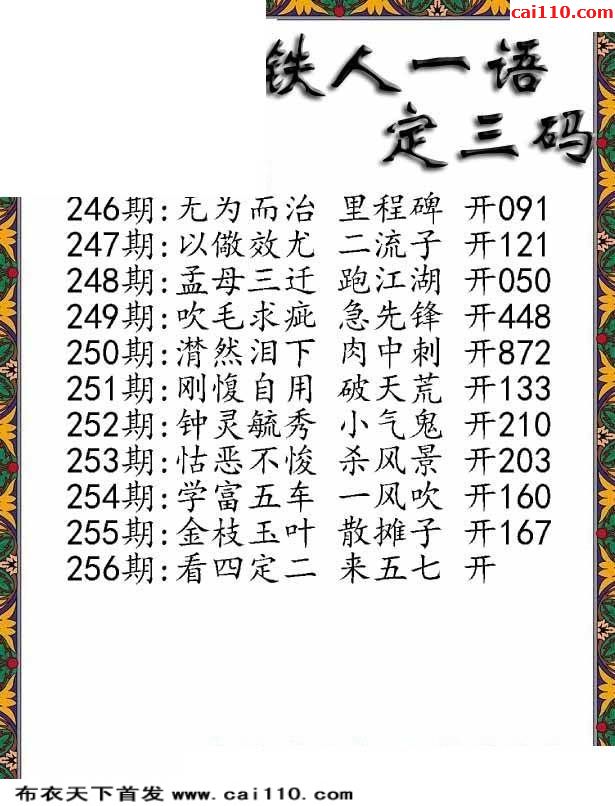 cai110.com
铁人一语
定三码
246期:无为而治 里程碑 开091
247期:以儆效尤 二流子 开121
248期:孟母三迁 跑江湖 开050
249期:吹毛求疵 急先锋 开448
250期:潸然泪下 肉中刺 开872
251期:刚愎自用 破天荒 开133
252期:钟灵毓秀 小气鬼 开210
253期:怙恶不悛 杀风景 开203
254期:学富五车 一风吹 开160
255期:金枝玉叶 散摊子 开167
256期:看四定二 来五七 开
布衣天下首发 www.cai110.com